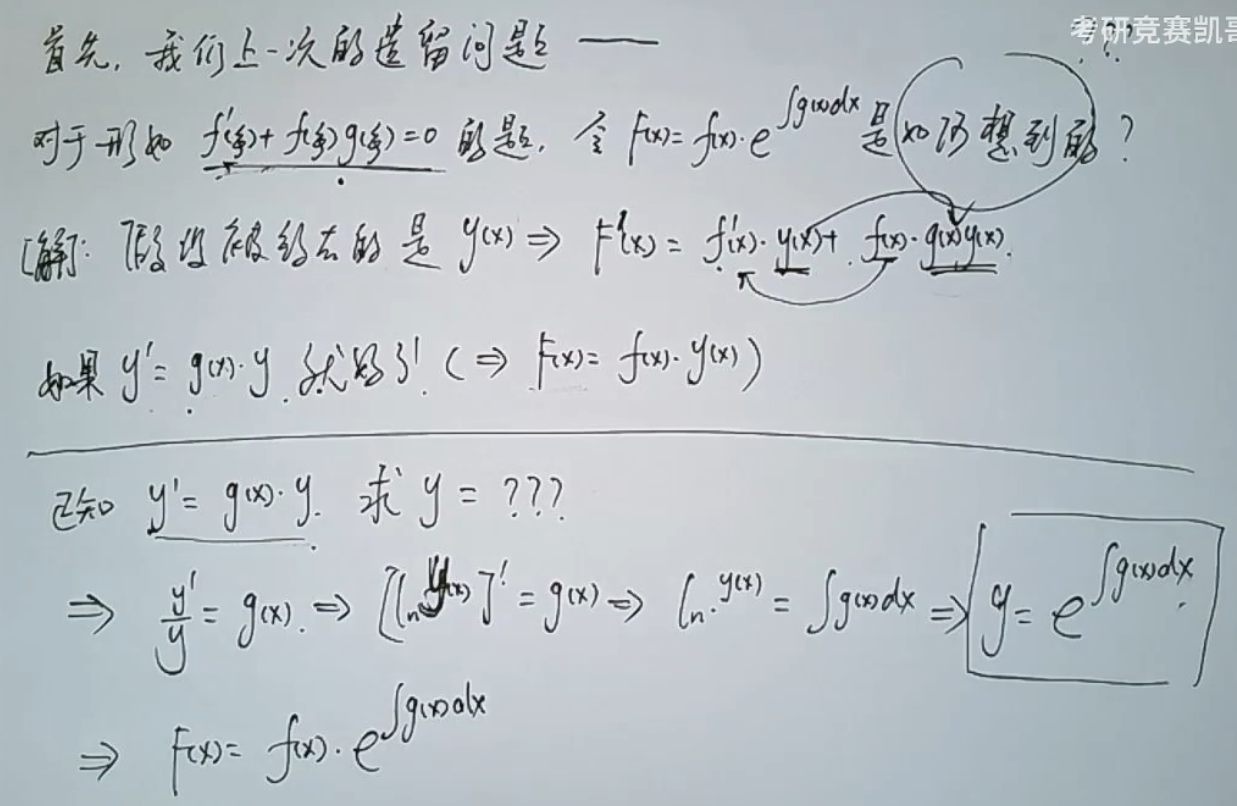 考研竞赛凯哥
???
首先，我们上一次的遗留问题 ——
对于形如 f'(ξ)+f(ξ)g(ξ)=0 的题，令 F(x)=f(x)·e^{∫g(x)dx} 是如何想到的？
[解]：假设被约去的是 y(x) ⇒ F'(x) = f'(x)·y(x)+f(x)·g(x)y(x).
如果 y'=g(x)·y. 就好了! (⇒ F(x)=f(x)·y(x))
已知 y'=g(x)·y. 求 y=???
⇒ y'/y=g(x). ⇒ [ln y(x)]'=g(x) ⇒ ln y(x)=∫g(x)dx ⇒ y=e^{∫g(x)dx}.
⇒ F(x)=f(x)·e^{∫g(x)dx}